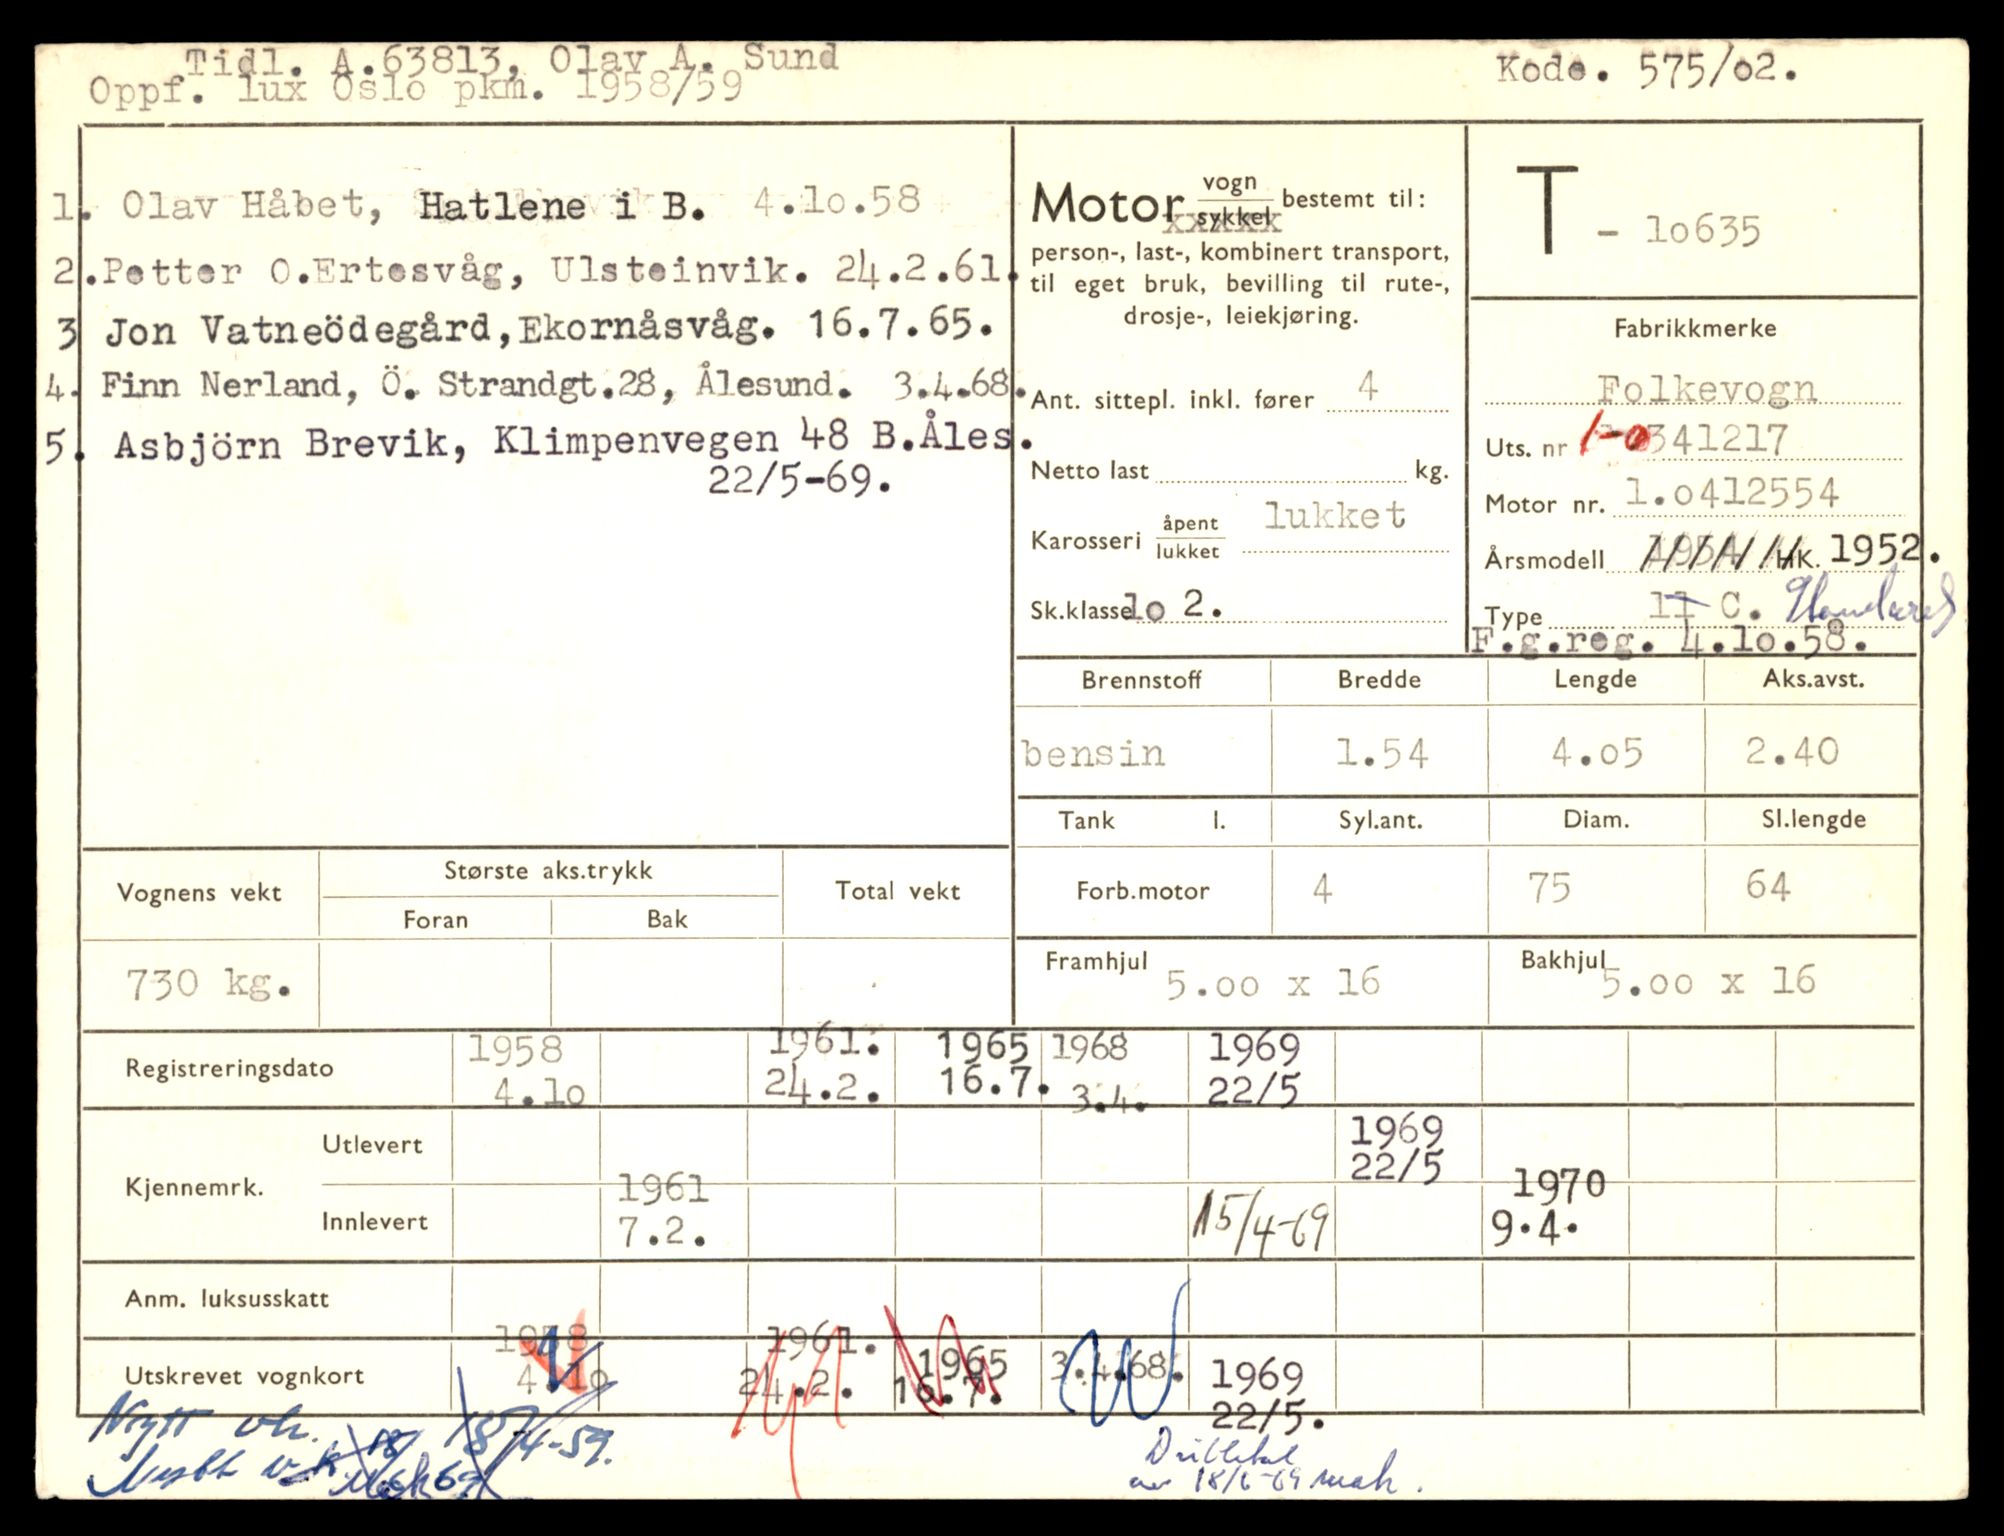 Tidl. A.63813, Olav A. Sund
Oppf. lux Oslo pkm. 1958/59
Kode. 575/o2.
1. Olav Håbet, Hatlene i B. 4.lo.58
2.Petter O.Ertesvåg, Ulsteinvik. 24.2.61.
3 Jon Vatneödegård,Ekornåsvåg. 16.7.65.
4. Finn Nerland, Ö. Strandgt.28, Ålesund. 3.4.68.
5. Asbjörn Brevik, Klimpenvegen 48 B.Åles.
22/5-69.
Motor vogn sykkel bestemt til:
person-, last-, kombinert transport,
til eget bruk, bevilling til rute-,
drosje-, leiekjøring.
Ant. sittepl. inkl. fører 4
Netto last kg.
Karosseri åpent lukket lukket
Sk.klasse lo 2.
T - lo635
Fabrikkmerke
Folkevogn
Uts. nr 1-0341217
Motor nr. l.o412554
Årsmodell HK. 1952.
Type 11 C. Standard
F.g.reg. 4.lo.58.
Brennstoff Bredde Lengde Aks.avst.
bensin 1.54 4.o5 2.40
Tank l. Syl.ant. Diam. Sl.lengde
Forb.motor 4 75 64
Framhjul 5.oo x 16 Bakhjul 5.oo x 16
Vognens vekt Største aks.trykk Total vekt
Foran Bak
730 kg.
Registreringsdato 1958 1961. 1965 1968 1969
4.lo 24.2. 16.7. 3.4. 22/5
Kjennemrk. Utlevert 1969
22/5
Innlevert 1961 15/4-69 1970
7.2. 9.4.
Anm. luksusskatt
Utskrevet vognkort 1958 1961. 1965 3.4.68. 1969
4.lo 24.2. 16.7. 22/5.
Nytt vk. 18/4-59.
18/6-69